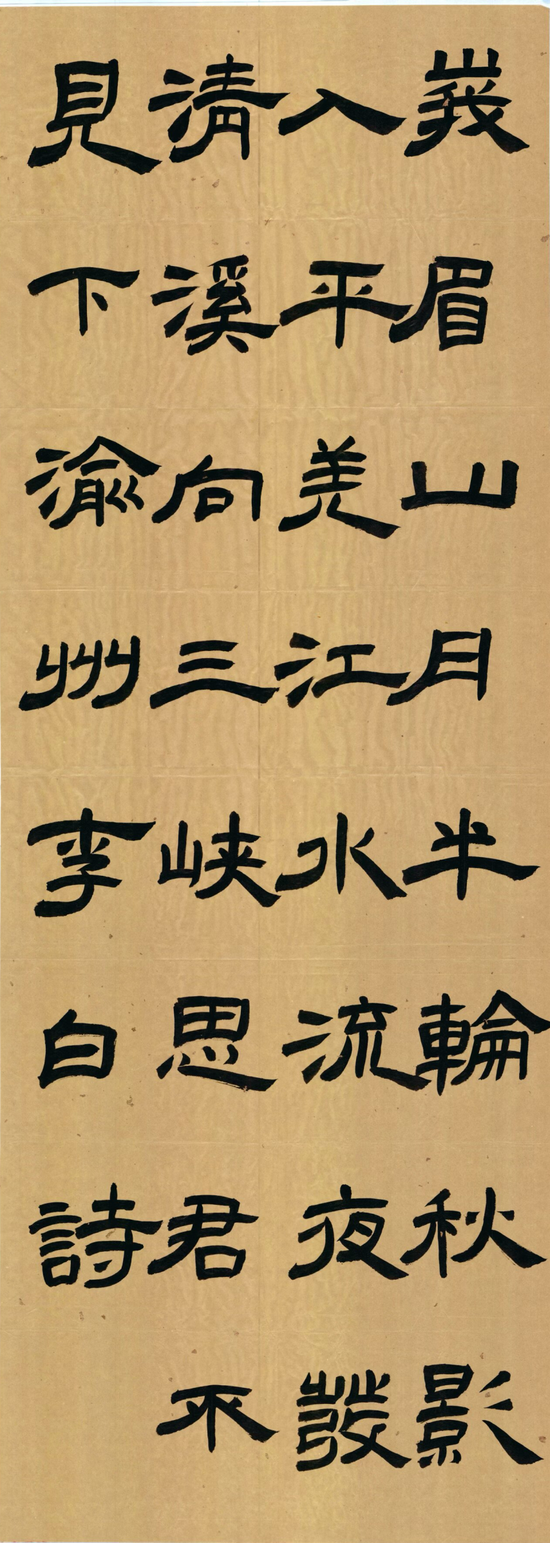 峩眉山月半輪秋影
入平羌江水流夜發
清溪向三峽思君不
見下渝州李白詩